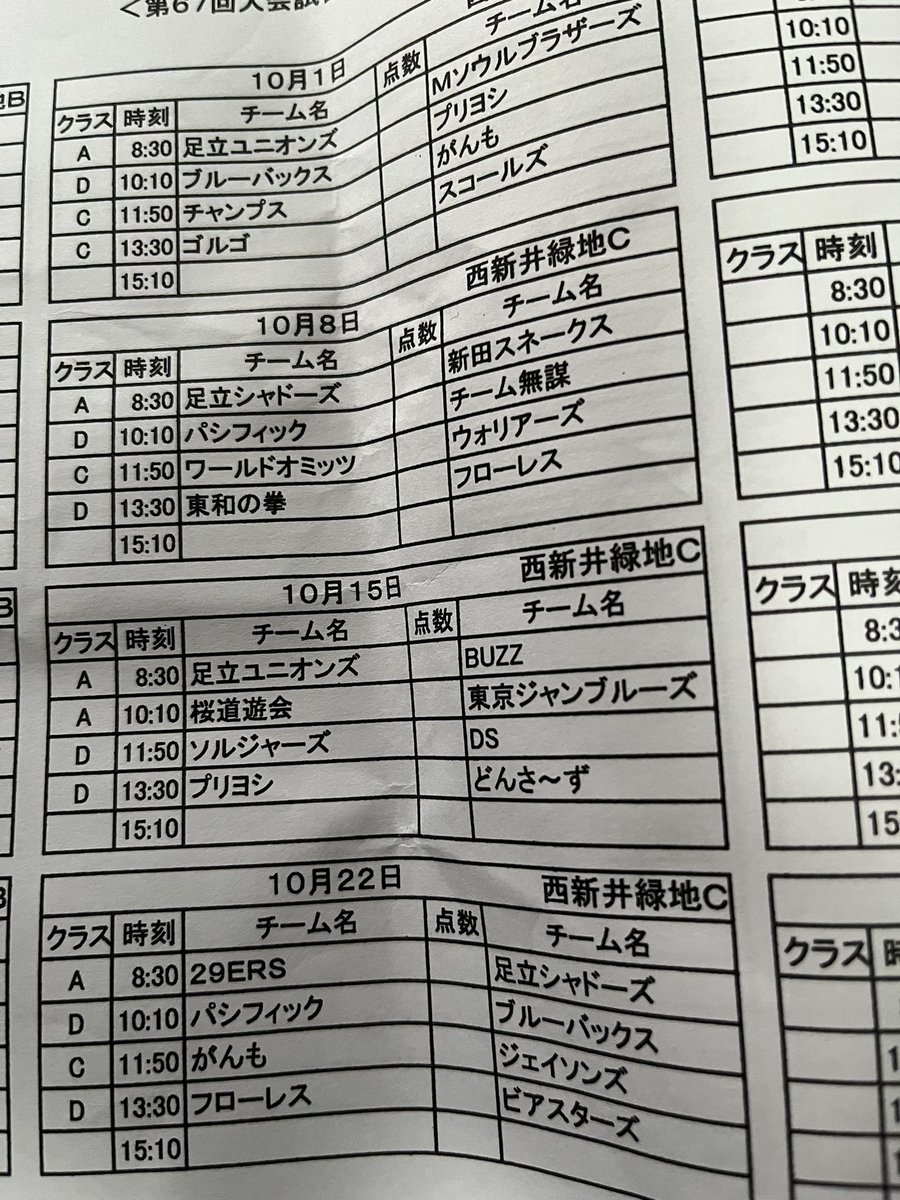 ＜第67回大会試
10月1日
クラス 時刻 チーム名 点数 チーム名
A 8:30 足立ユニオンズ Mソウルブラザーズ
D 10:10 ブルーバックス プリヨシ
C 11:50 チャンプス がんも
C 13:30 ゴルゴ スコールズ
15:10
10月8日 西新井緑地C
クラス 時刻 チーム名 点数 チーム名
A 8:30 足立シャドーズ 新田スネークス
D 10:10 パシフィック チーム無謀
C 11:50 ワールドオミッツ ウォリアーズ
D 13:30 東和の拳 フローレス
15:10
10月15日 西新井緑地C
クラス 時刻 チーム名 点数 チーム名
A 8:30 足立ユニオンズ BUZZ
A 10:10 桜道遊会 東京ジャンブルーズ
D 11:50 ソルジャーズ DS
D 13:30 プリヨシ どんさ～ず
15:10
10月22日 西新井緑地C
クラス 時刻 チーム名 点数 チーム名
A 8:30 29ERS 足立シャドーズ
D 10:10 パシフィック ブルーバックス
C 11:50 がんも ジェイソンズ
D 13:30 フローレス ビアスターズ
15:10
10:10
11:50
13:30
15:10
クラス 時刻
8:30
10:10
11:50
13:30
15:10
クラス 時刻
クラス